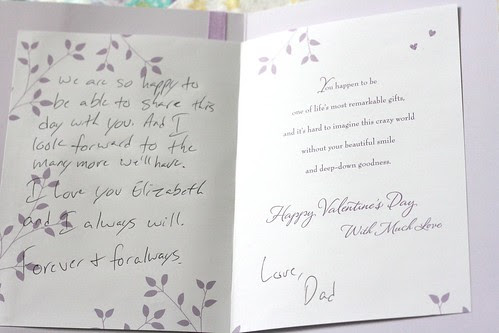 We are so happy to
be able to share this
day with you. And I
look forward to the
many more we'll have.
I love you Elizabeth
and I always will.
Forever + foralways.
You happen to be
one of life's most remarkable gifts,
and it's hard to imagine this crazy world
without your beautiful smile
and deep-down goodness.
Happy Valentine's Day,
With Much Love
Love,
Dad